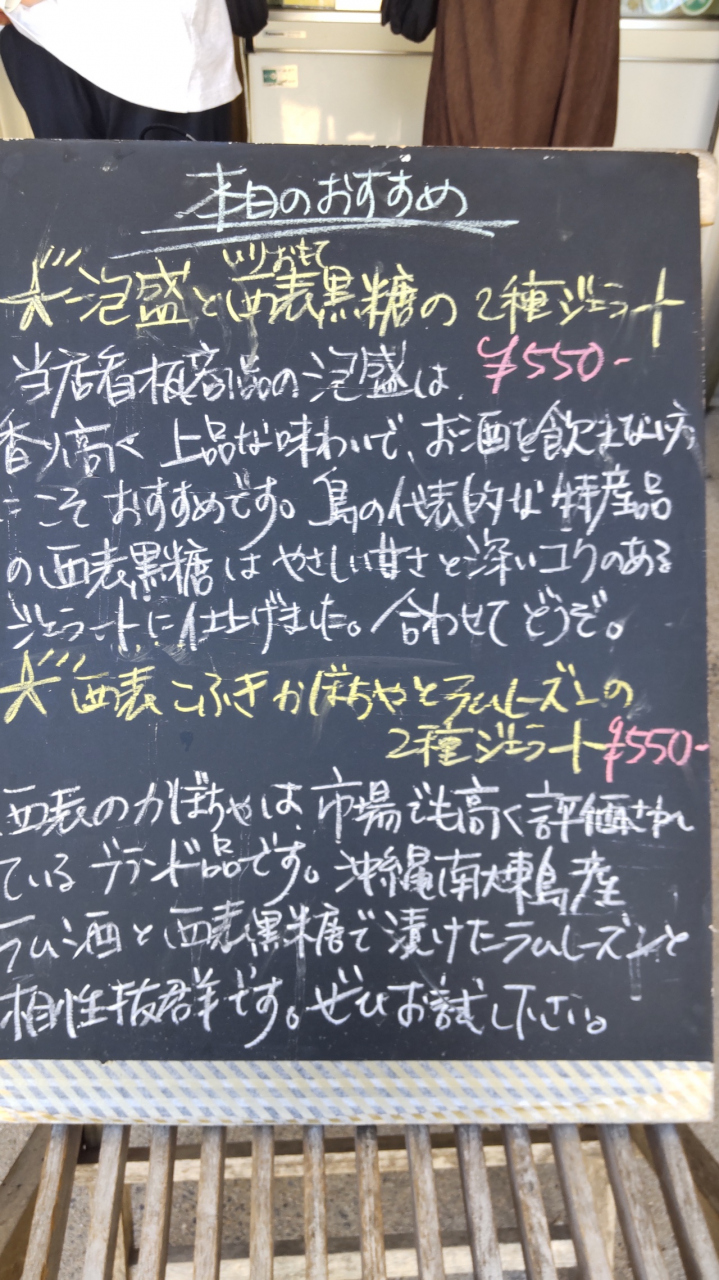 本日のおすすめ
いりおもて
★泡盛と西表黒糖の2種ジェラート
¥550-
当店看板商品の泡盛は、
香り高く上品な味わいで、お酒を飲まない方
にこそおすすめです。島の代表的な特産品
の西表黒糖はやさしい甘さと深いコクのある
ジェラートに仕上げました。合わせてどうぞ。
★西表こふきかぼちゃとラムレーズンの
2種ジェラート ¥550-
西表のかぼちゃは、市場でも高く評価され
ているブランド品です。沖縄南大東島産
ラム酒と西表黒糖で漬けたラムレーズンと
相性抜群です。ぜひお試し下さい。